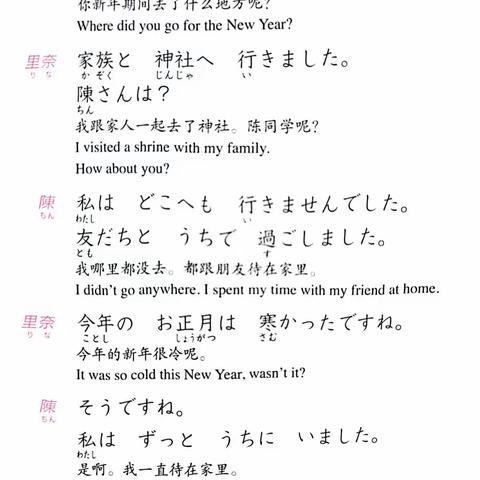 你新年期间去了什么地方呢?
Where did you go for the New Year?
里奈 家族と 神社へ 行きました。
りな かぞく じんじゃ い
陳さんは?
ちん
我跟家人一起去了神社。陈同学呢?
I visited a shrine with my family.
How about you?
陳 私は どこへも 行きませんでした。
ちん わたし い
友だちと うちで 過ごしました。
とも す
我哪里都没去。都跟朋友待在家里。
I didn't go anywhere. I spent my time with my friend at home.
里奈 今年の お正月は 寒かったですね。
りな ことし しょうがつ さむ
今年的新年很冷呢。
It was so cold this New Year, wasn't it?
陳 そうですね。
ちん
私は ずっと うちに いました。
わたし
是啊。我一直待在家里。